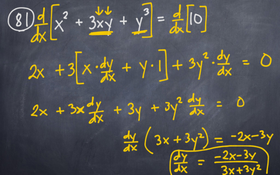 81) d/dx [x² + 3xy + y³] = d/dx [10]
2x + 3[x · dy/dx + y · 1] + 3y² · dy/dx = 0
2x + 3x dy/dx + 3y + 3y² dy/dx = 0
dy/dx (3x + 3y²) = -2x - 3y
dy/dx = (-2x - 3y)/(3x + 3y²)